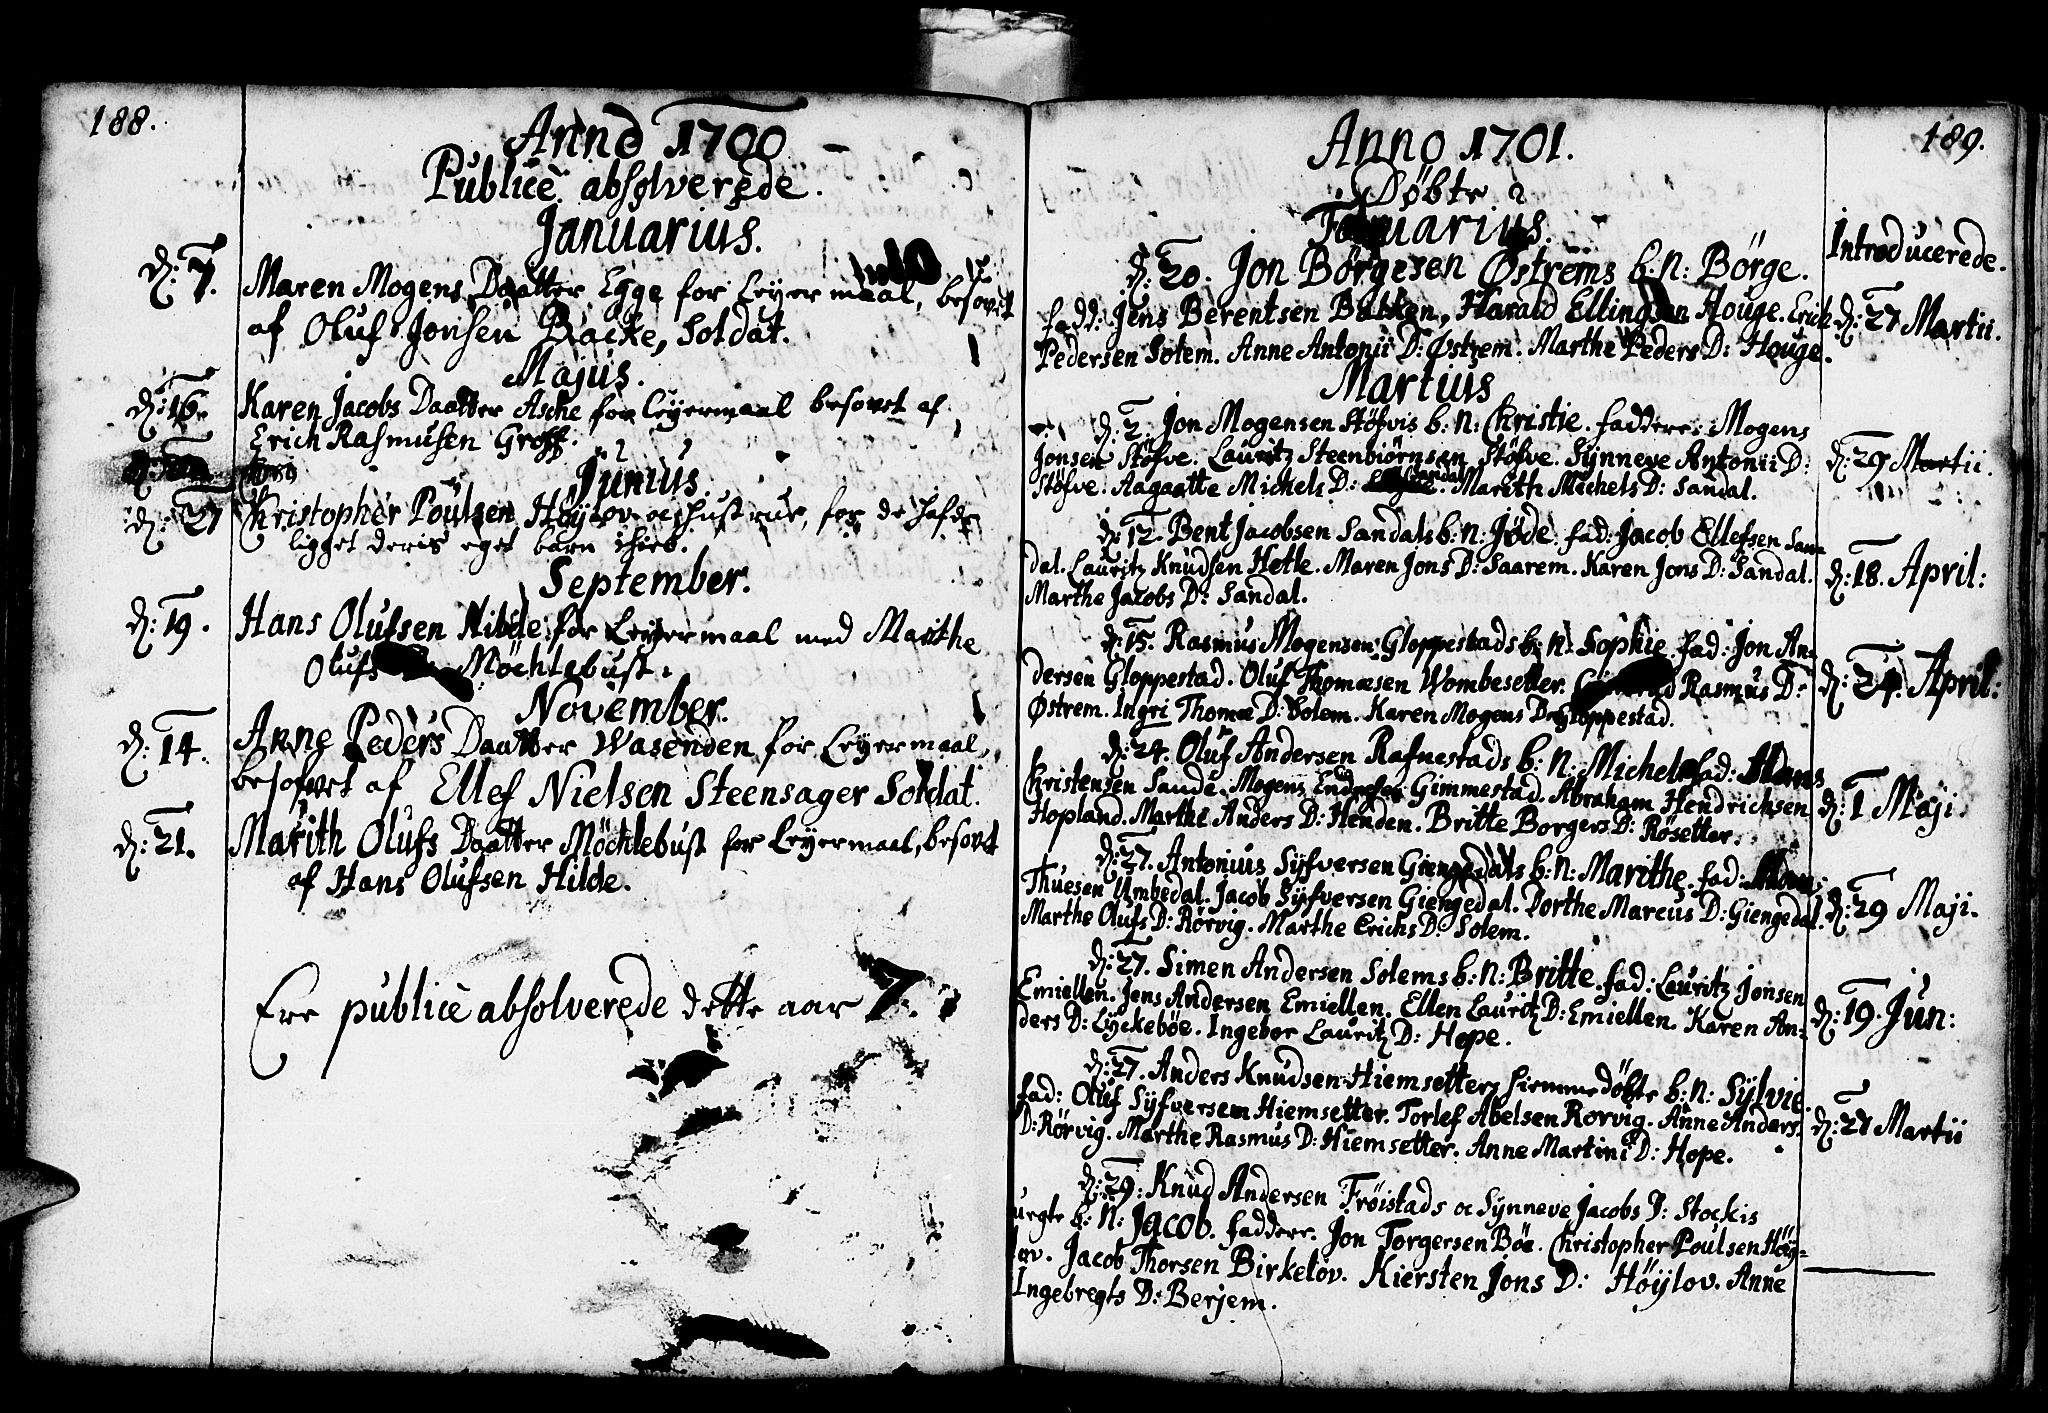 188.
Anno 1700
Publicè absolverede.
Januarius.
d: 7. Maren Mogens Daatter Egge for Leyermaal, besovet
af Oluf Jonsen Backe, Soldat.
Majus.
d: 16. Karen Jacobs Daatter Asche for Leyermaal besovet af
Erich Rasmusen Groff.
Junius
d: 27 Christopher Poulsen Høylov oc hustrue, for de hafde
ligget deris eget barn ihiel.
September.
d: 19. Hans Olufsen Hilde for Leyermaal med Marithe
Olufs Möchlebust.
November.
d: 14. Anne Peders Daatter Wasenden for Leyermaal,
besofvet af Ellef Nielsen Steensager Soldat.
d: 21. Marith Olufs Daatter Möchlebust for Leyermaal, besovet
af Hans Olufsen Hilde.
Ere publicè absolverede dette aar 7.
189.
Anno 1701.
Døbte
Januarius.
Introducerede.
d: 20. Jon Börgesen Østrems b: n: Börge.
fadd: Jens Berentsen Bakken, Harald Ellingsen Houge. Erick
d: 27 Martii.
Pedersen Solem. Anne Antonii D: Østrem. Marthe Peders D: Houge.
Martius
d: 2. Jon Mogensen Stöfvis b: n: Christie. faddere: Mogens
Jonsen Stöfve. Lauritz Steenbiørnsen Stöfve. Synneve Antonii D:
d: 29 Martii.
Stöfve. Aagaatte Michels D: Sandal. Marith Michels D: Sandal.
d: 12. Bent Jacobsen Sandals b: n: Jöde. fad: Jacob Ellefsen San-
dal. Lauritz Knudsen Hetle. Maren Jons D: Saarem. Karen Jons D: Sandal.
d: 18. April:
Marthe Jacobs D: Sandal.
d: 15. Rasmus Mogensen Gloppestads b: n: Sophie. fad: Jon An-
dersen Gloppestad. Oluf Thomæsen Wombesetter. Rasmus D:
d: 24. April:
Østrem. Ingri Thomæ D: Solem. Karen Mogens D: Gloppestad.
d: 24. Oluf Andersen Rafnestads b: n: Michel. fad: Hans
Christensen Sande. Mogens Endresen Gimmestad. Abraham Hendrichsen
d: 1 Maji.
Hopland. Marthe Anders D: Henden. Britte Borgers D: Røsetter.
d: 27. Antonius Syfversen Giengedals b: n: Marithe. fad:
Thuesen Ymbedal. Jacob Syfversen Giengedal. Dorthe Marcus D: Giengedal.
d: 29 Maji.
Marthe Olufs D: Rörvig. Marthe Erichs D: Solem.
d: 27. Simen Andersen Solems b: n: Britte. fad: Lauritz Jonsen
Emiellen. Jens Andersen Emiellen. Ellen Lauritz D: Emiellen. Karen An-
d: 19. Jun:
ders D: Lyckebøe. Ingebor Lauritz D: Hope.
d: 27. Anders Knudsen Hiemsetters hiemmedöbte b: n: Sylvie.
fad: Oluf Syfversen Hiemsetter. Torlef Abelsen Rorvig. Anne Anders
d: 27 Martii
D: Rörvig. Marthe Rasmus D: Hiemsetter. Anne Martini D: Hope.
d: 29: Knud Andersen Fröistads oc Synneve Jacobs D: Stockis
uegte b: n: Jacob. faddere. Jon Torgersen Böe. Christopher Poulsen Höy-
lov. Jacob Thorsen Birkelov. Kiersten Jons D: Höylov. Anne
Ingebregts D: Berjem.